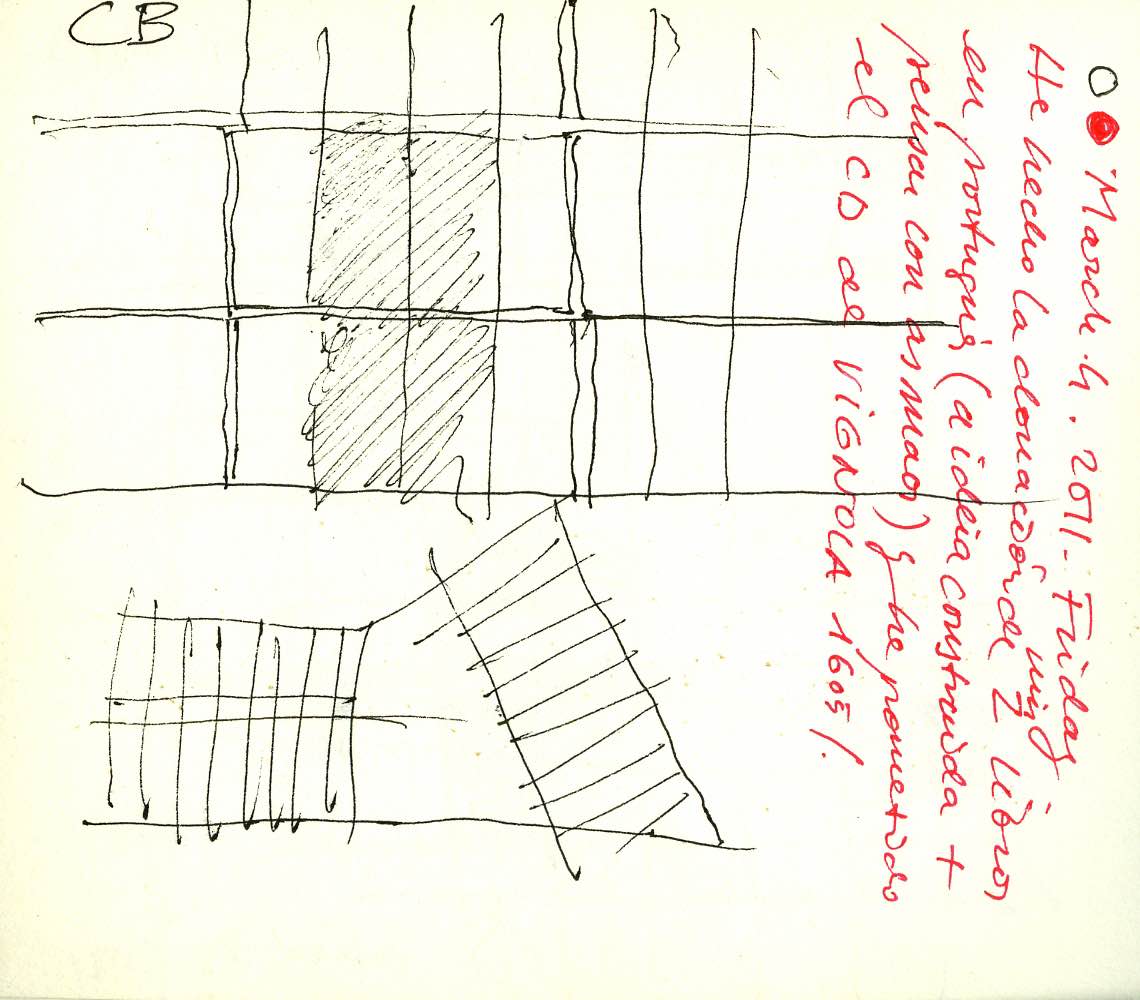 CB
March 4. 2011 - Friday
He hecho la donación de 2 libros
en portugués (a ideia construida +
pensar con as maos) y he prometido
el CD de VIGNOLA 1605/.